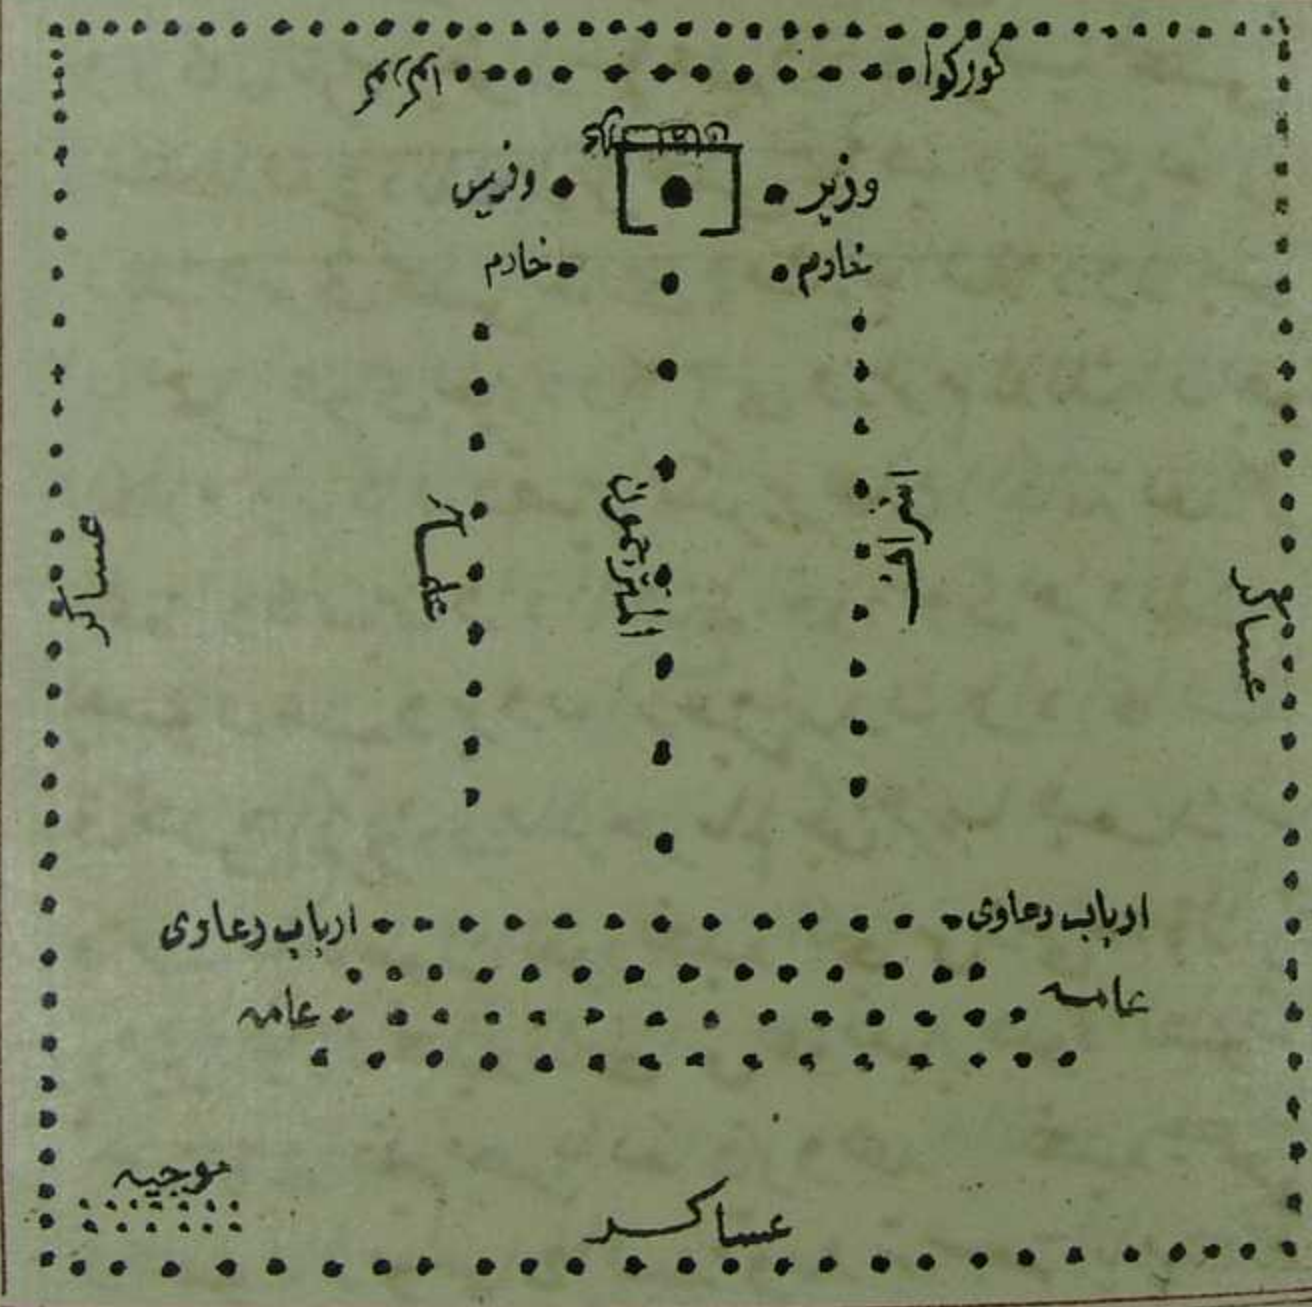 كوركوا
وزير
وزير
خادم
خادم
علماء
المترجمون
عساكر
عساكر
ارباب دعاوى
ارباب دعاوى
عامه
عامه
موجيه
عساكر